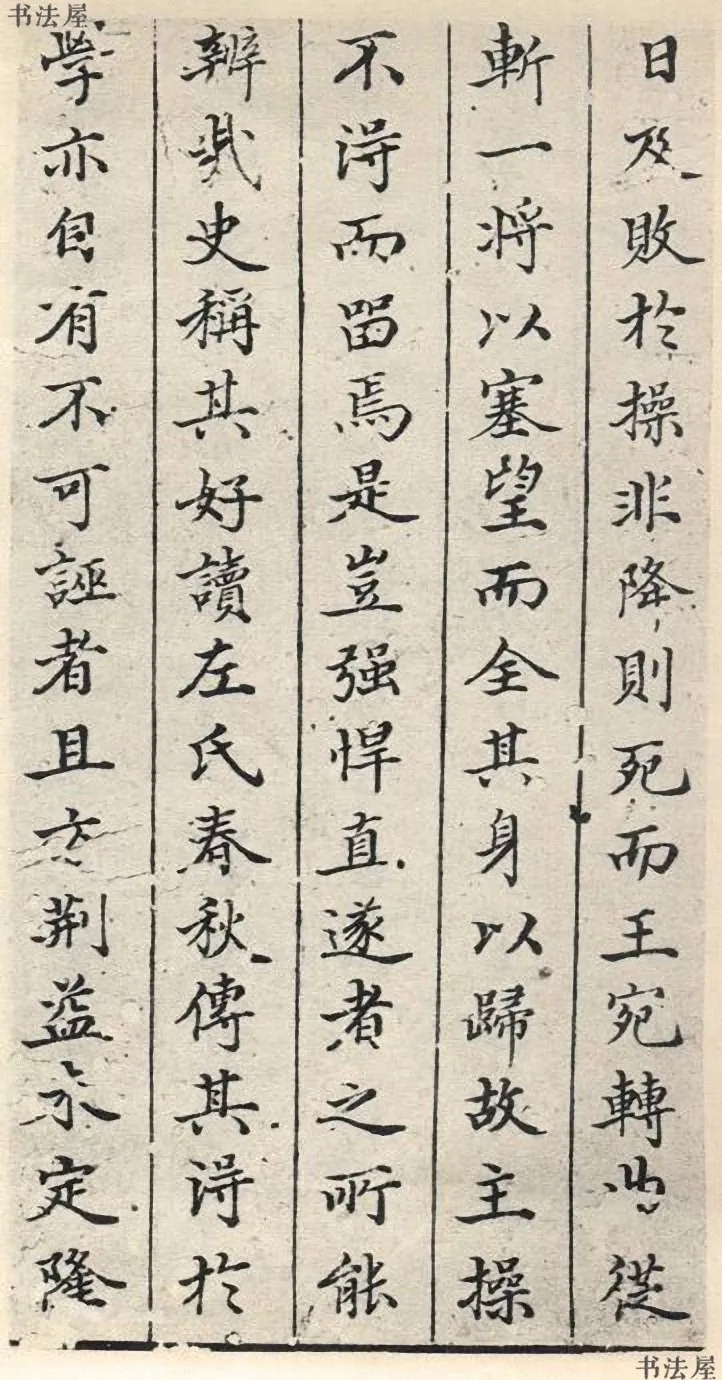 书法屋
日及敗於操非降則死而王宛轉曲從
斬一將以塞望而全其身以歸故主操
不得而留焉是豈强悍直遂者之所能
辨哉史稱其好讀左氏春秋傳其得於
學亦自有不可誣者且方荆益未定隆
书法屋